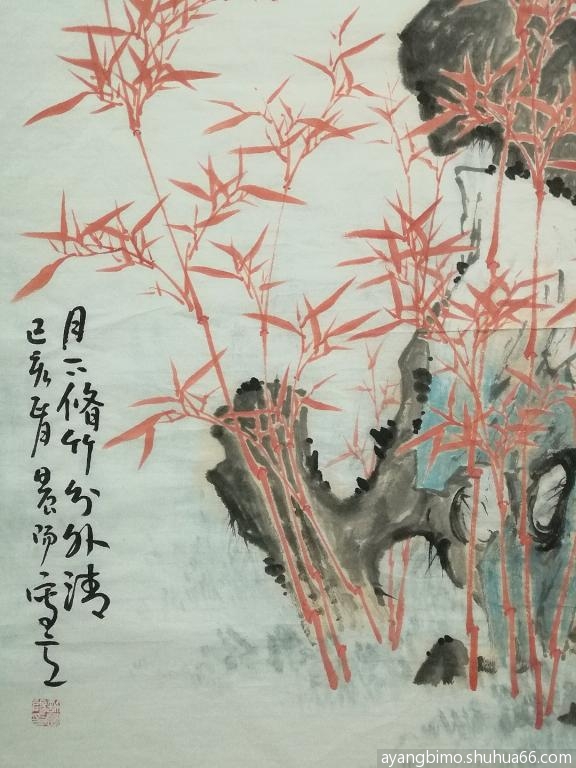 月下脩竹分外清
己亥正月晨阳写意
ayangbimo.shuhua66.com